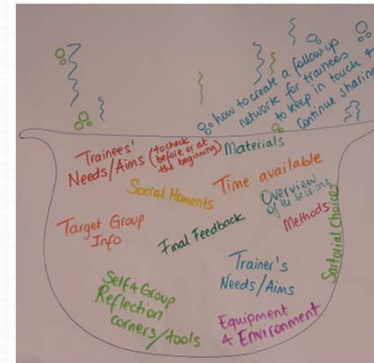 how to create a follow-up
network for trainees
to keep in touch &
continue sharing
Trainees'
Needs/Aims (to check
before or at
the beginning)
Materials
Social Moments
Time available
Overview
of the sessions
Methods
Target Group
Info
Final Feedback
Sartorial Choices
Self & Group
Reflection
corners/tools
Trainer's
Needs/Aims
Equipment
& Environment